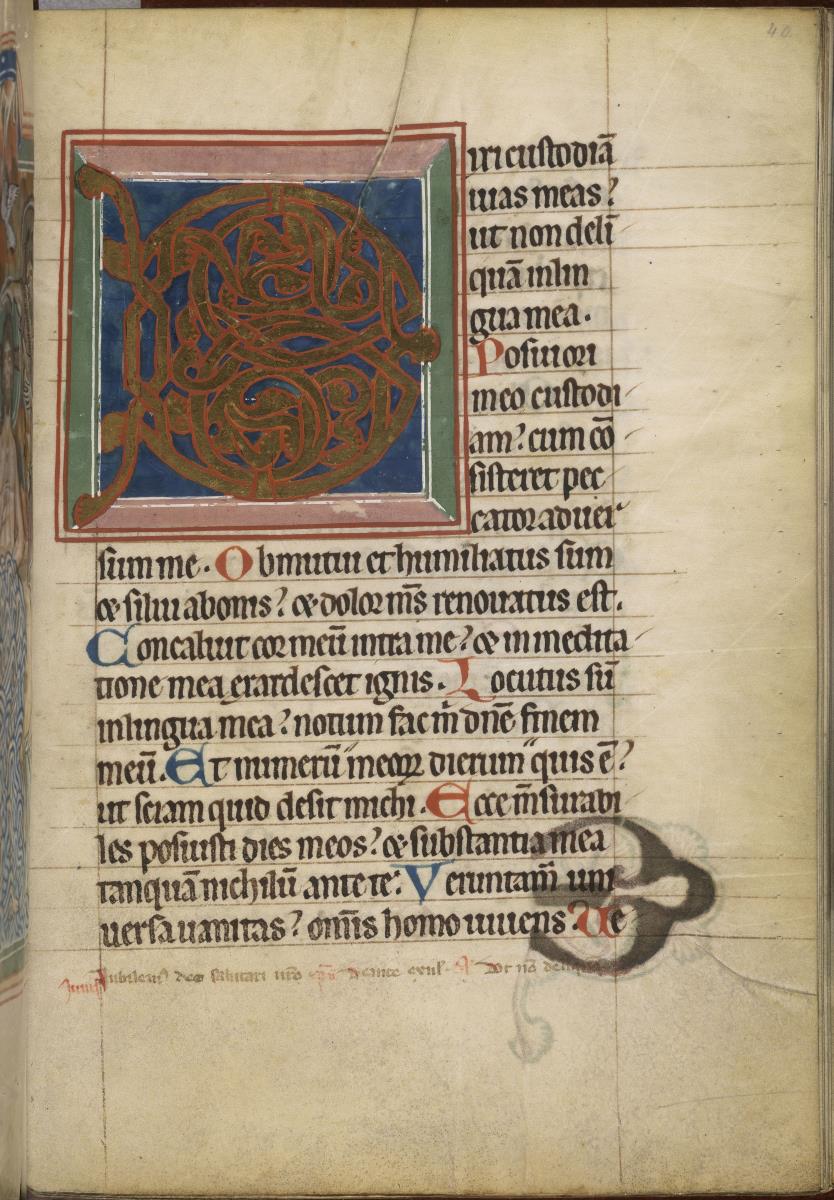 40
D ixi custodiā
uias meas?
ut non delī
quā inlin
gua mea.
Posui ori
meo custodi
am? cum cō
sisteret pec
cator aduer
sum me. Obmutui et humiliatus sum
& silui abonis? & dolor m̄s renouatus est.
Concaluit cor meū intra me? & in medita
tione mea exardescet ignis. Locutus sū
inlingua mea? notum fac m̄ dn̄e finem
meū. Et numerū meoꝝ dierum quis ē?
ut sciam quid desit michi. Ecce m̄surabi
les posuisti dies meos? & substantia mea
tanquā nichilū ante te. Veruntam̄ uni
uersa uanitas? om̄is homo uiuens. Ve
Iubilem deo salutari nr̄o